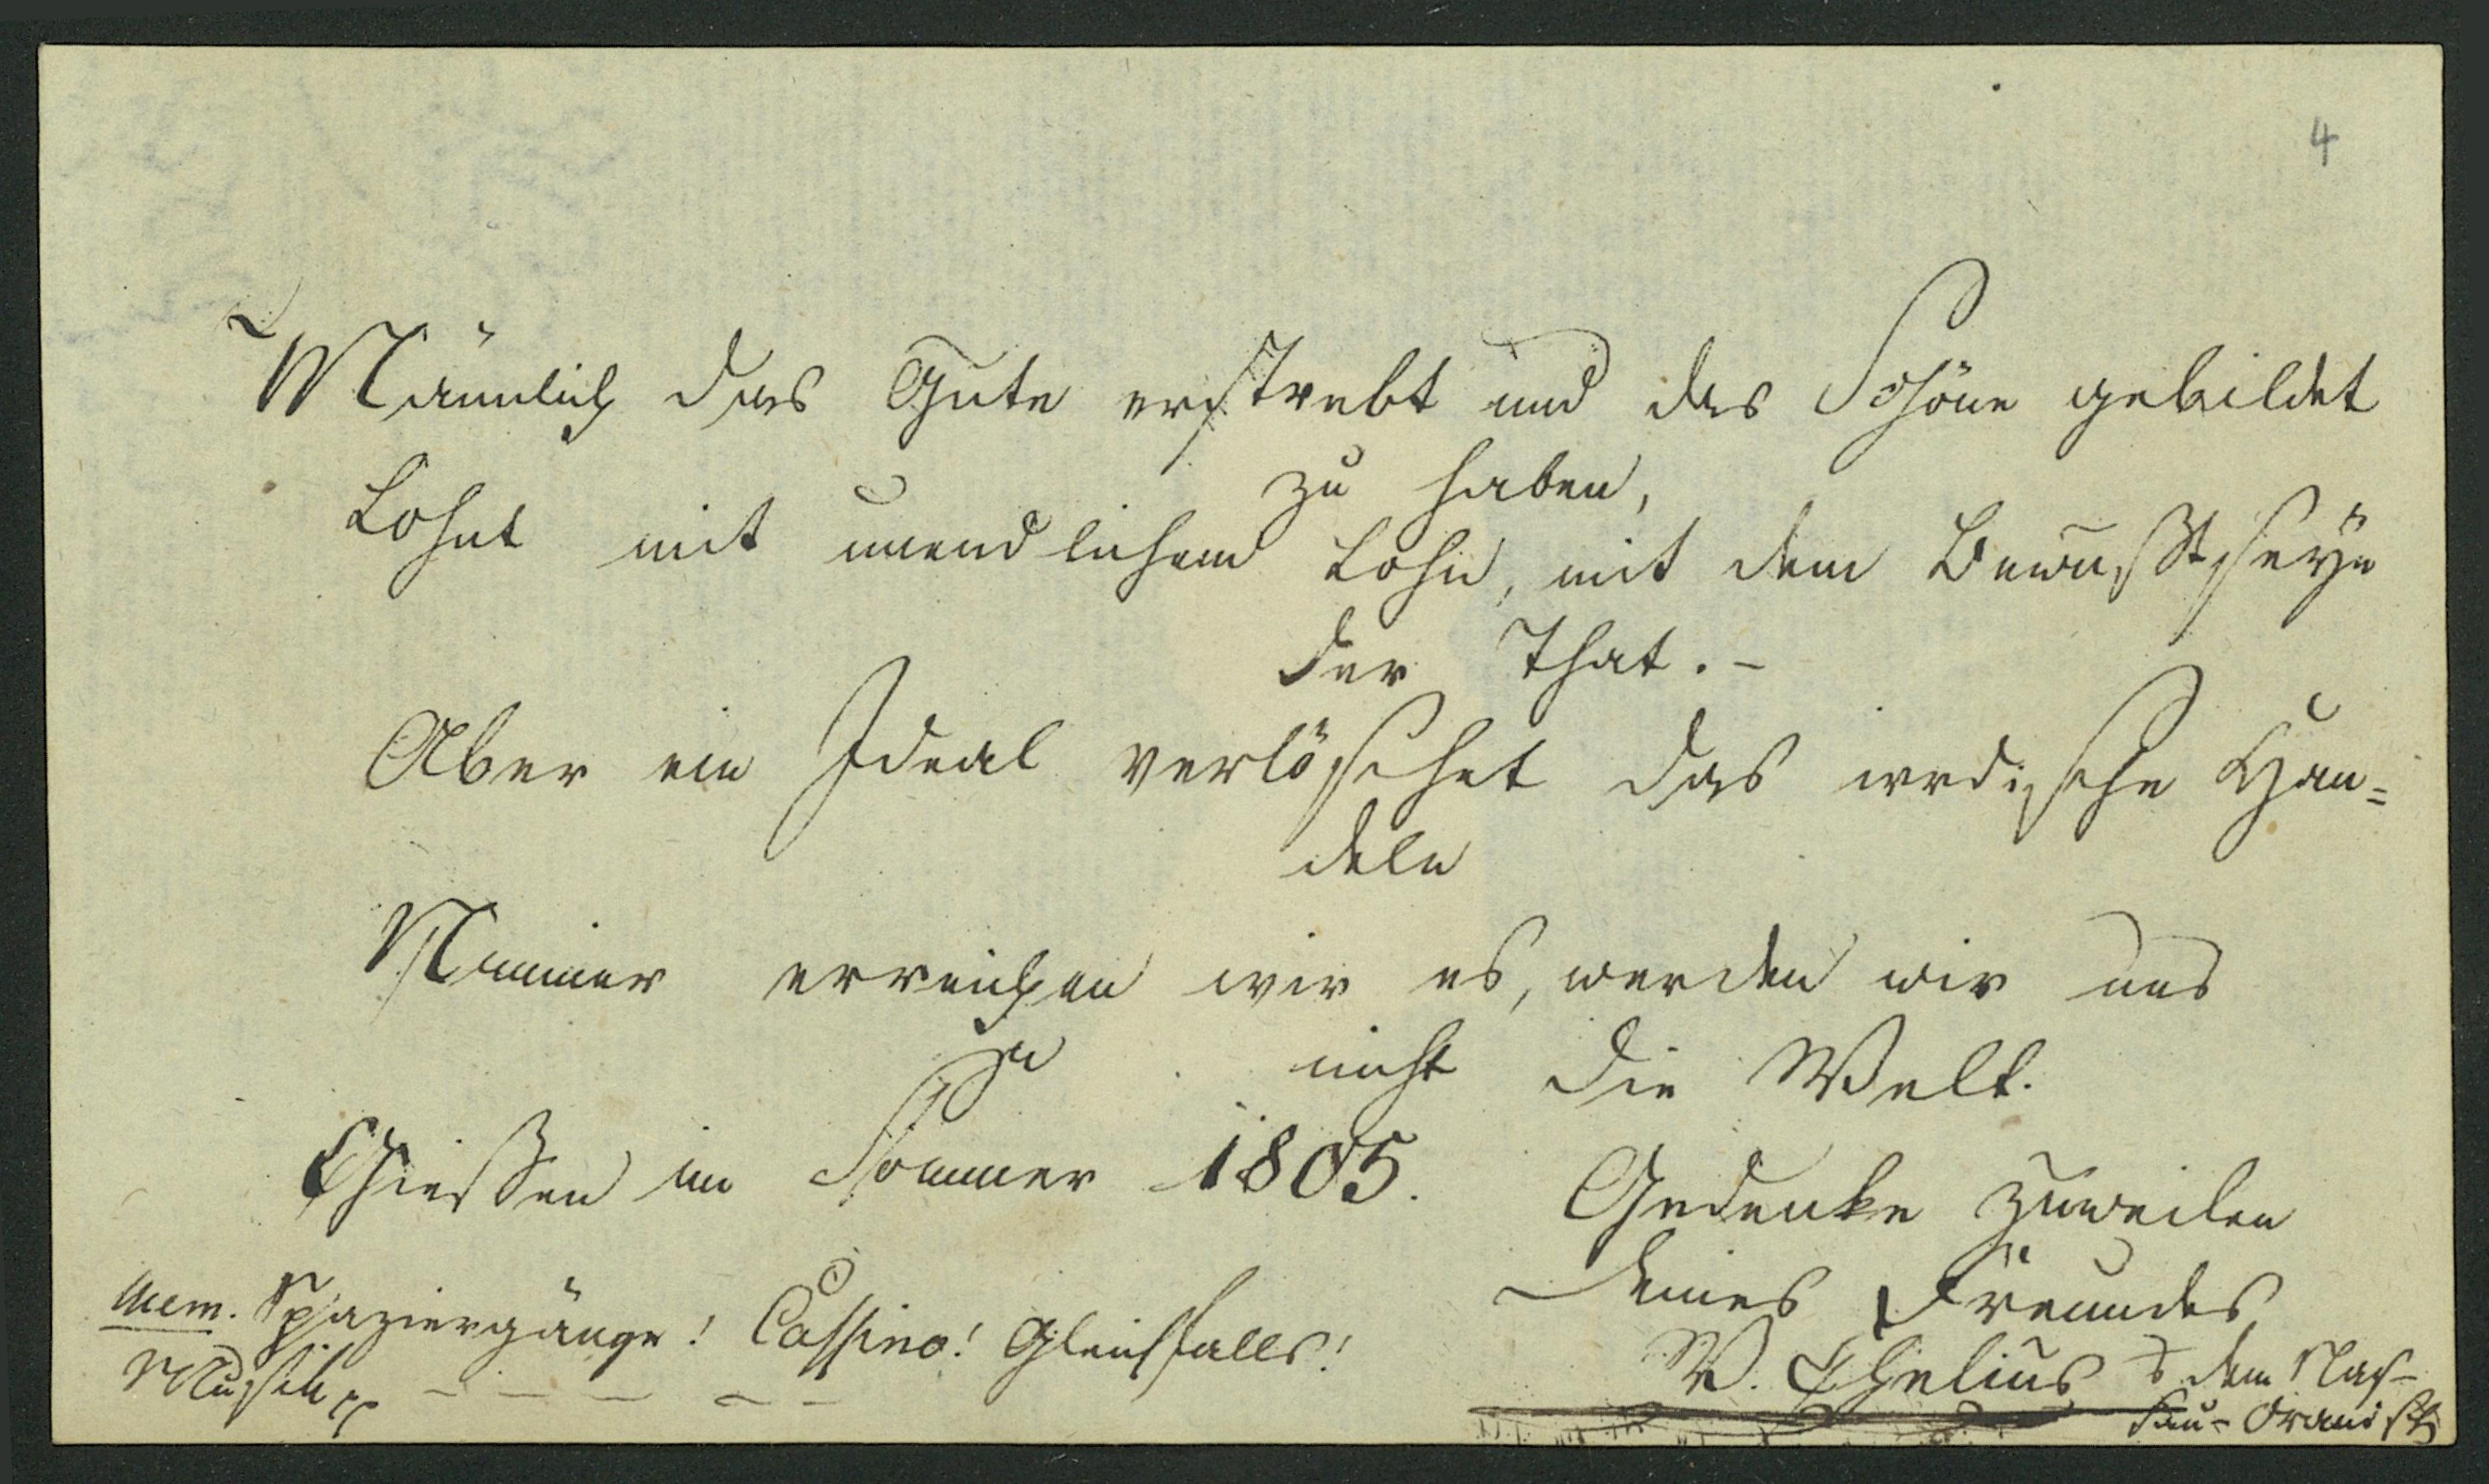 4
Männlich das Gute erstrebt und das Schöne gebildet
zu haben,
Lohnt mit unendlichem Lohn, mit dem Bewußtseyn
der That. -
Aber ein Ideal verlöschet das irrdische Han=
deln
Nimmer erreichen wir es, werden wir uns
nicht die Welt.
Giessen im Sommer 1805.
Gedenke zuweilen
Deines Freundes
W. Chelius dem Nas-
sau-Oranisch
mem. Spaziergänge! Cassino! Gleichfalls!
Musik